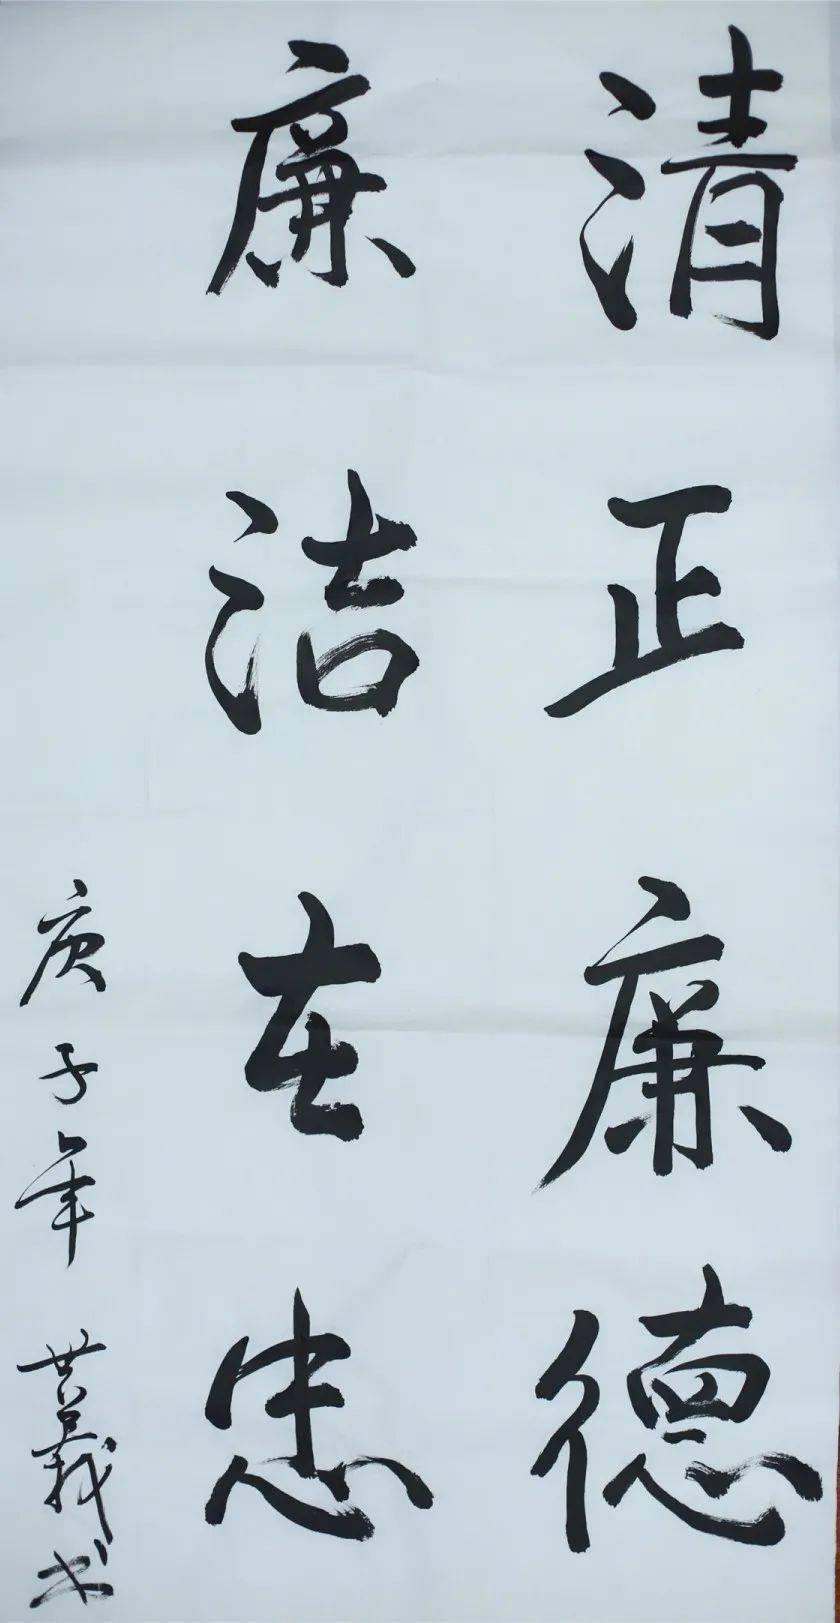 清正廉德
廉洁在忠
庚子年 世義书